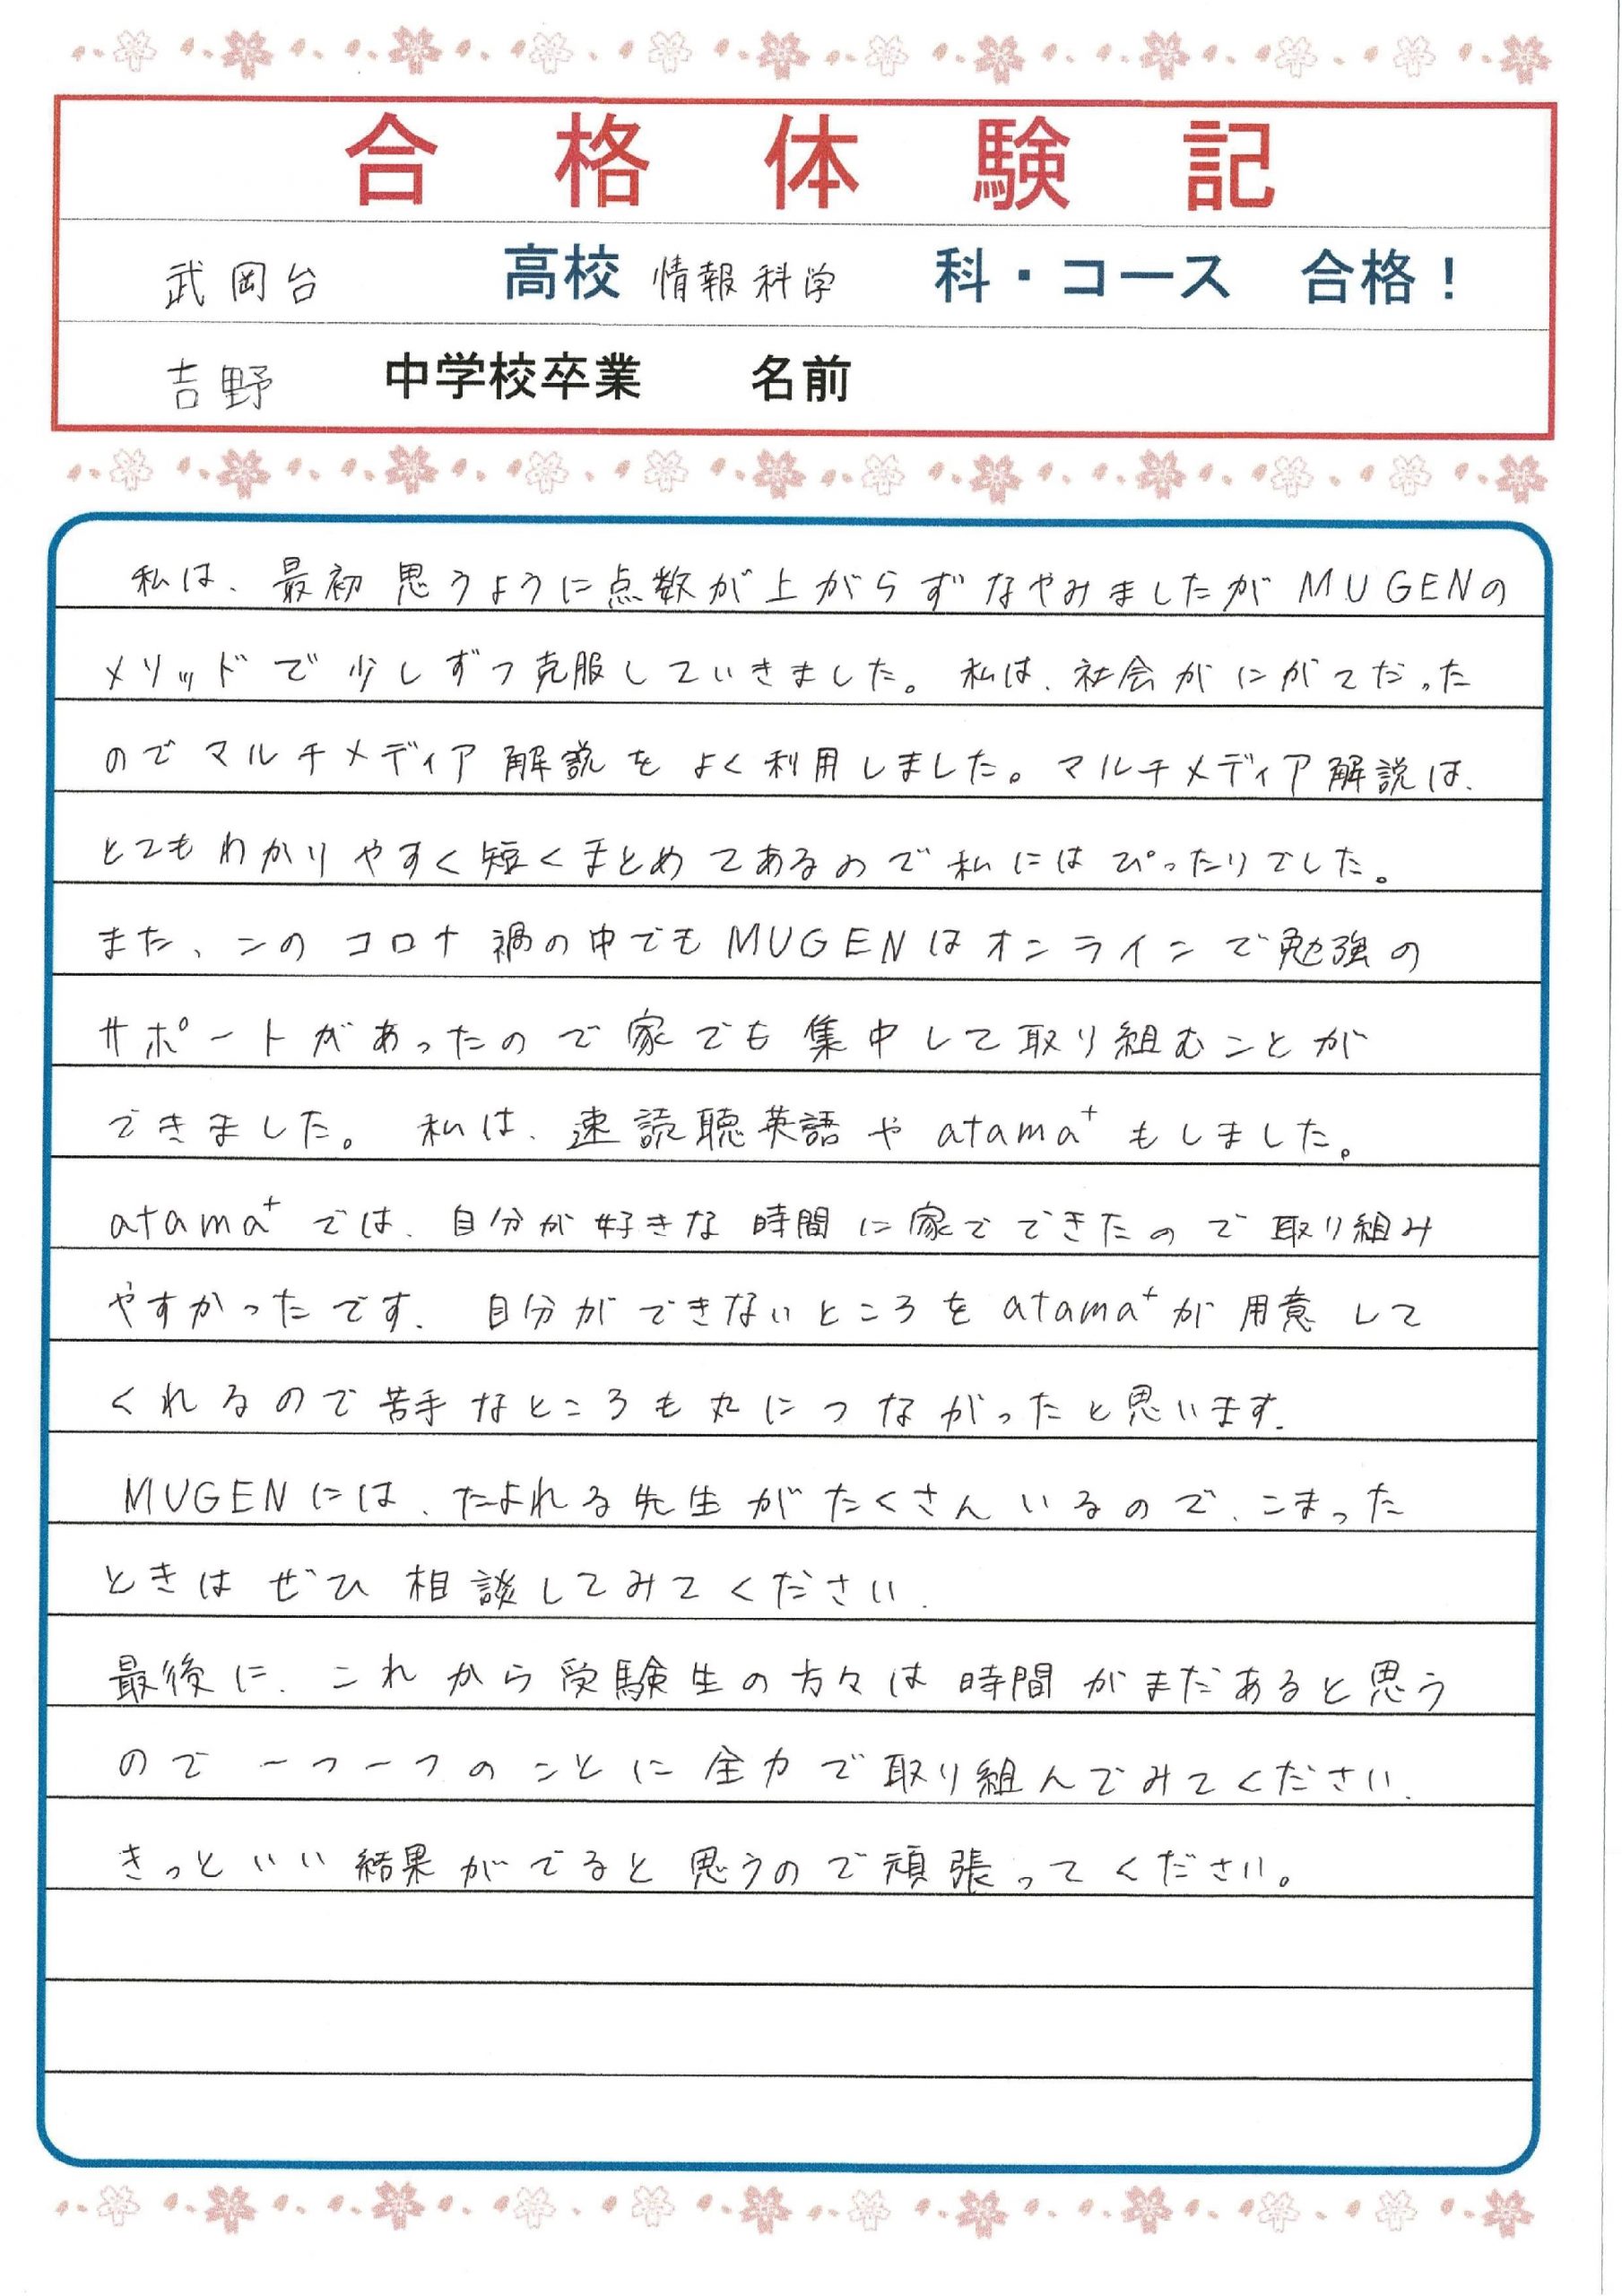 合格体験記
武岡台 高校 情報科学 科・コース 合格！
吉野 中学校卒業 名前
私は、最初思うように点数が上がらずなやみましたがMUGENの
メリッドで少しずつ克服していきました。私は、社会がにがてだった
のでマルチメディア解説をよく利用しました。マルチメディア解説は、
とてもわかりやすく短くまとめてあるので私にはぴったりでした。
また、このコロナ禍の中でもMUGENはオンラインで勉強の
サポートがあったので家でも集中して取り組むことが
できました。私は、速読聴英語やatama⁺もしました。
atama⁺では、自分が好きな時間に家でできたので取り組み
やすかったです。自分ができないところをatama⁺が用意して
くれるので苦手なところも丸につながったと思います。
MUGENには、たよれる先生がたくさんいるので、こまった
ときはぜひ相談してみてください。
最後に、これから受験生の方々は時間がまだあると思う
ので一つ一つのことに全力で取り組んでみてください。
きっといい結果がでると思うので頑張ってください。